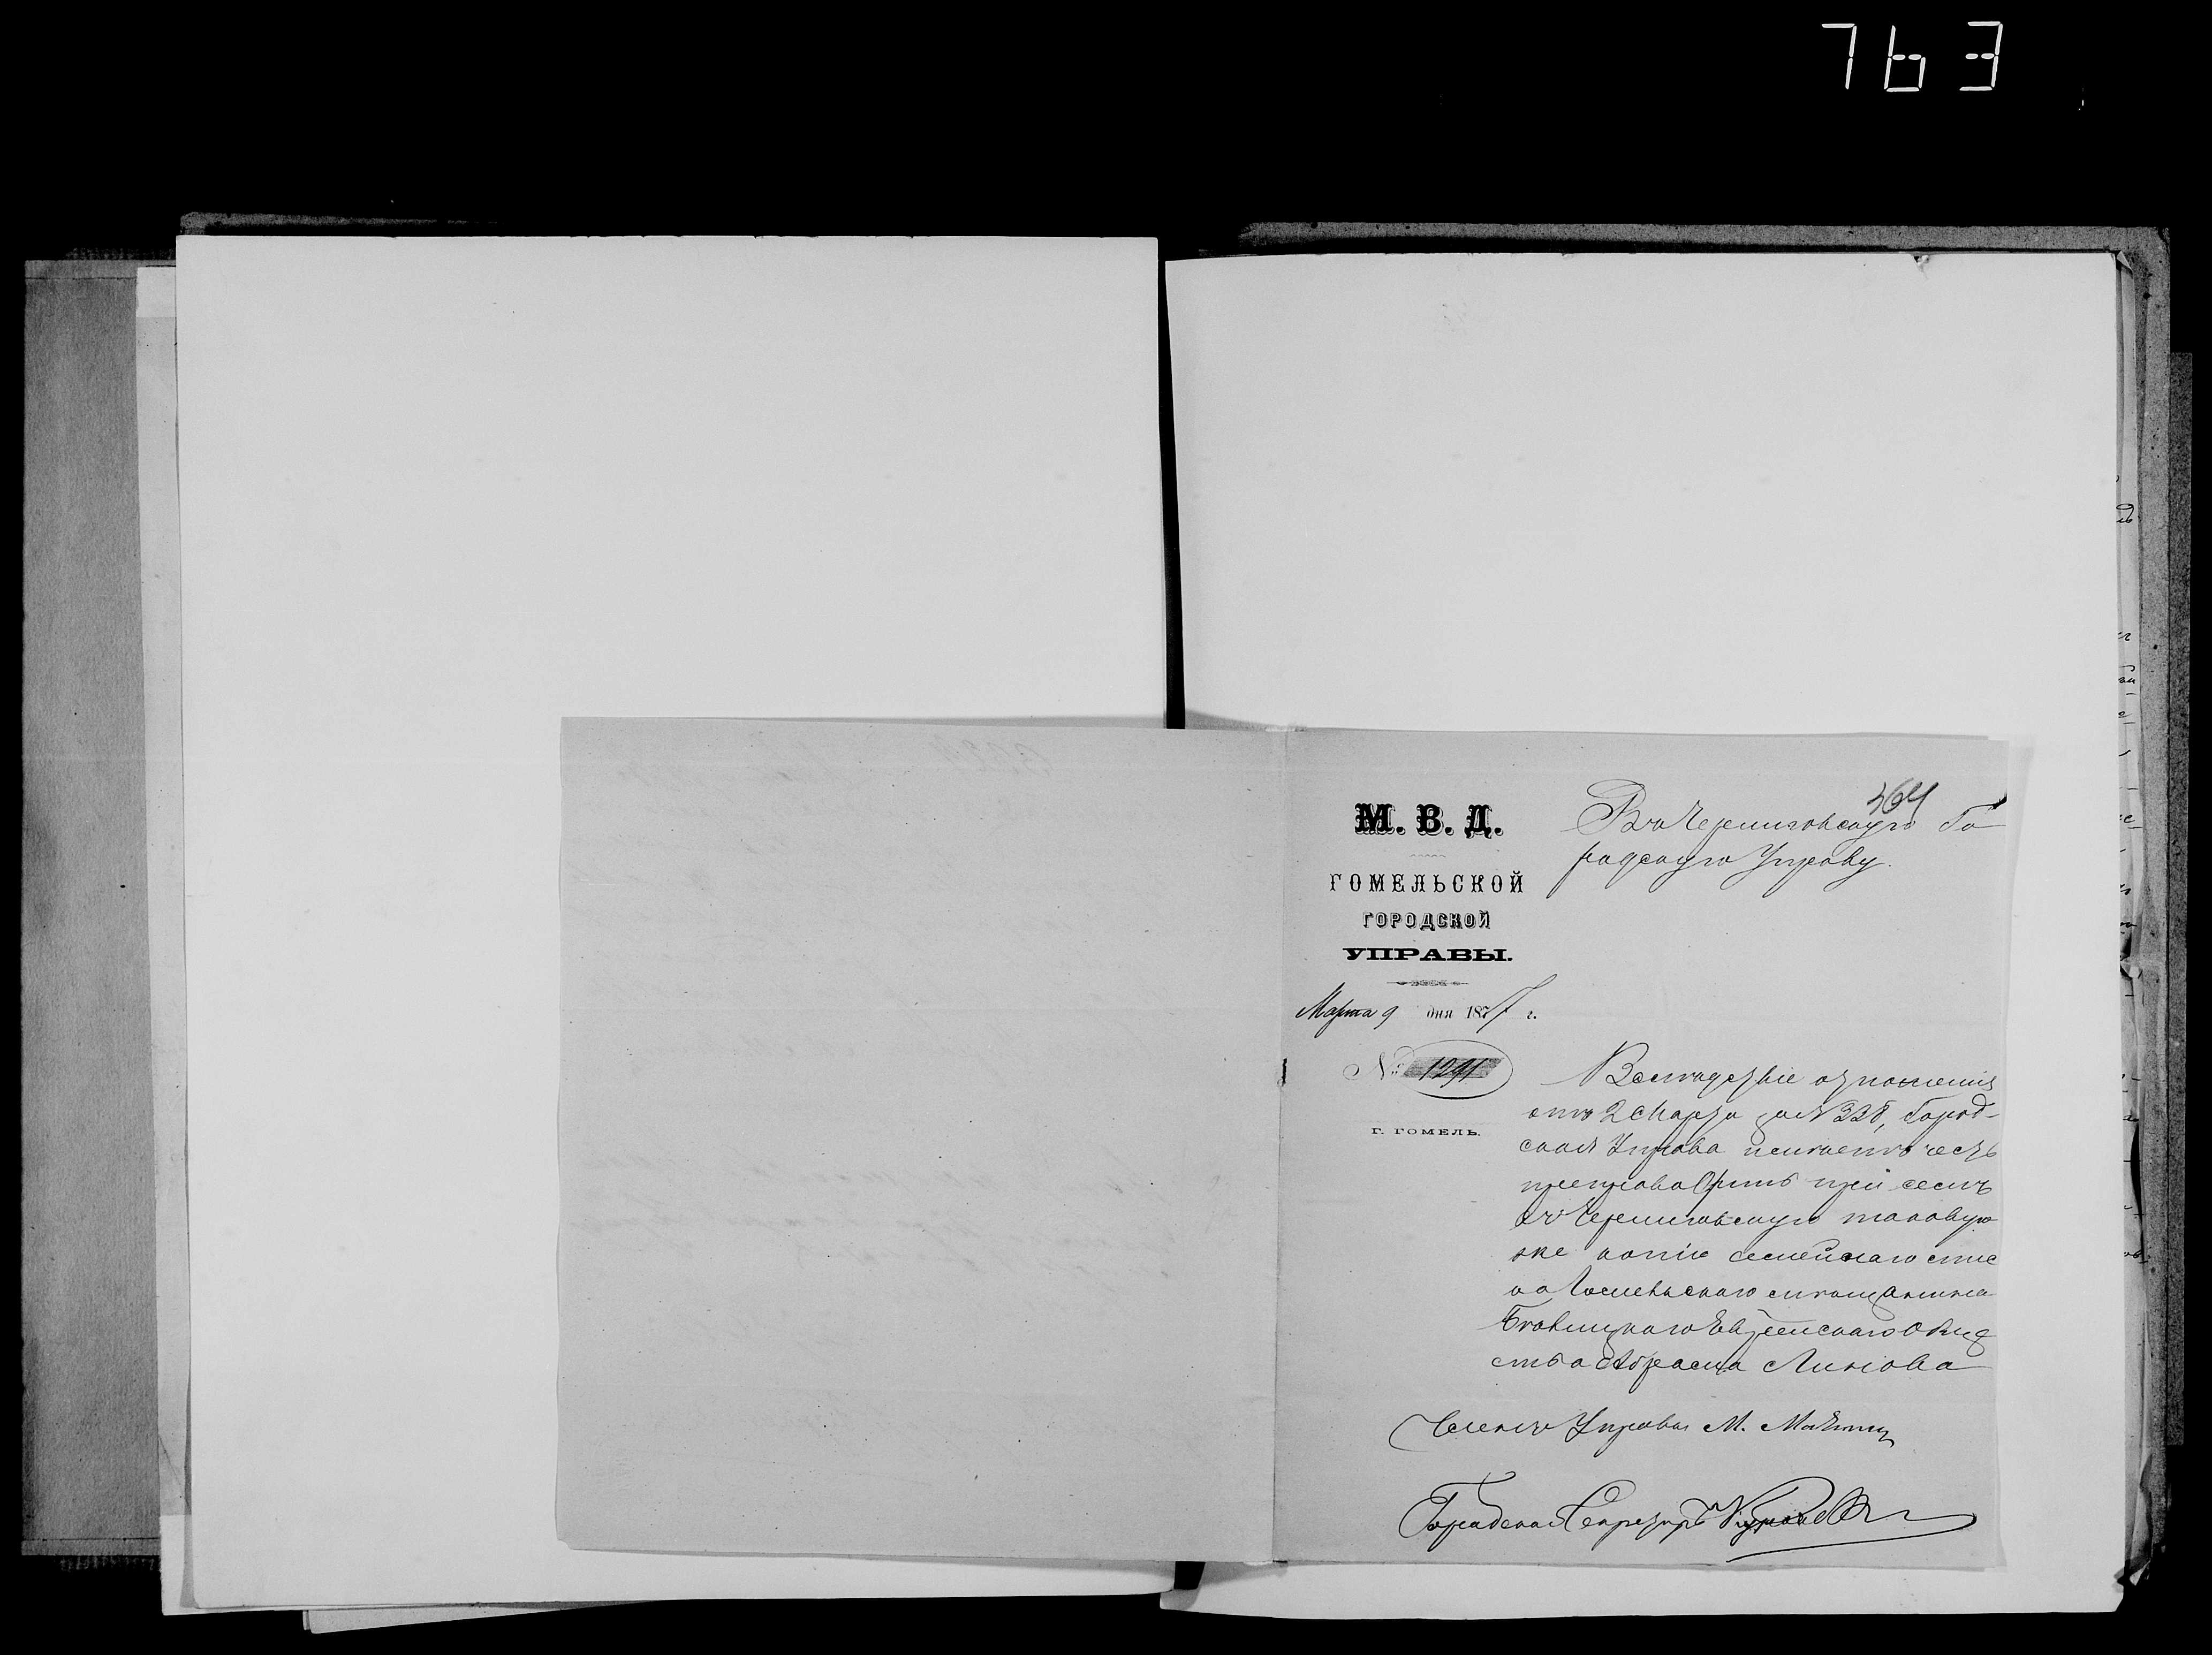 763
364
М. В. Д.
ГОМЕЛЬСКОЙ
ГОРОДСКОЙ
УПРАВЫ.
Марта 9 дня 1877 г.
№ 1291
Г. ГОМЕЛЬ.
Въ Черниговскую Го
родскую Управу.
Вслѣдствіе отношенія
отъ 2 Марта за № 338, Город-
ская Управа имѣетъ честь
препроводить при семъ
въ Черниговскую таковую
же копію семейнаго спис
ка Гомельскаго мѣщанина
Бѣлицкаго Еврейскаго Обще
ства Абрама Линова
Членъ Управы М.
Городской Секретарь